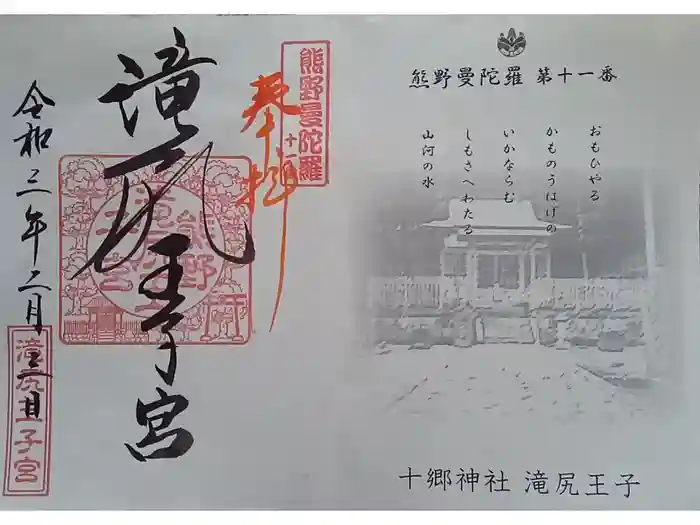 熊野曼陀羅 第十一番
おもひやる
かものうはげの
いかならむ
しもさへわたる
山河の水
十郷神社 滝尻王子
熊野曼陀羅
十一
奉拝
滝尻王子宮
令和三年二月
滝尻王子宮